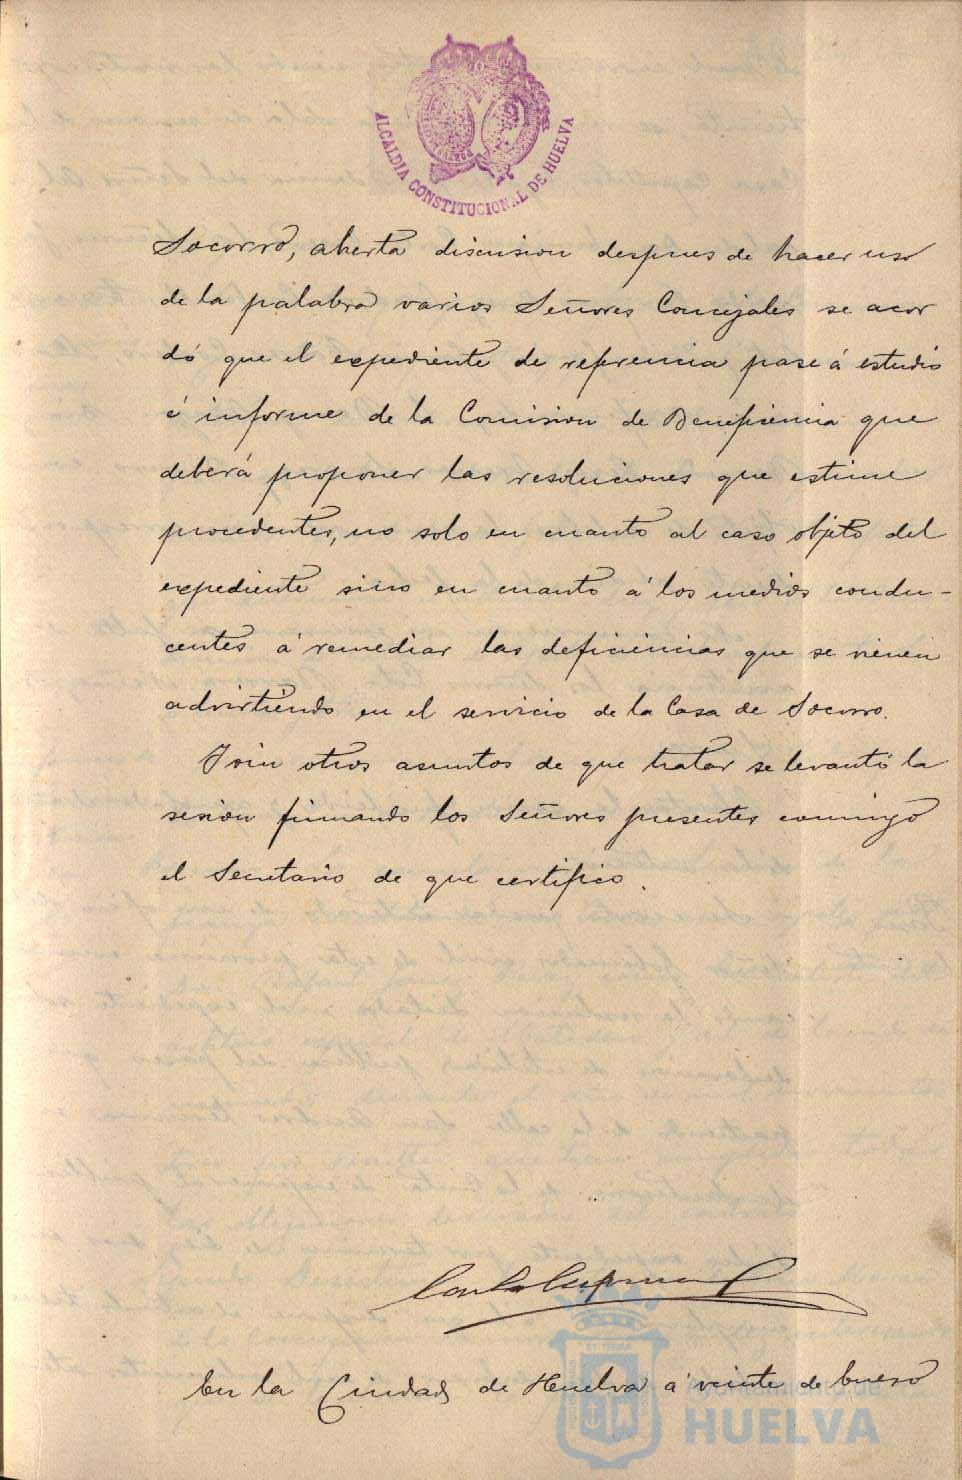 ALCALDIA CONSTITUCIONAL DE HUELVA
Socorro, aberta discusion despues de hacer uso
de la palabra varios Señores Concejales se acor
dó que el expediente de referencia pase á estudio
é informe de la Comision de Beneficencia que
deberá proponer las resoluciones que estime
procedentes, no solo en cuanto al caso objeto del
expediente sino en cuanto á los medios condu-
centes á remediar las deficiencias que se vienen
advirtiendo en el servicio de la Casa de Socorro.
Y sin otros asuntos de que tratar se levantó la
sesion firmando los Señores presentes conmigo
el Secretario de que certifico.
En la Ciudad de Huelva á veinte de Enero
Ayuntamiento de
HUELVA